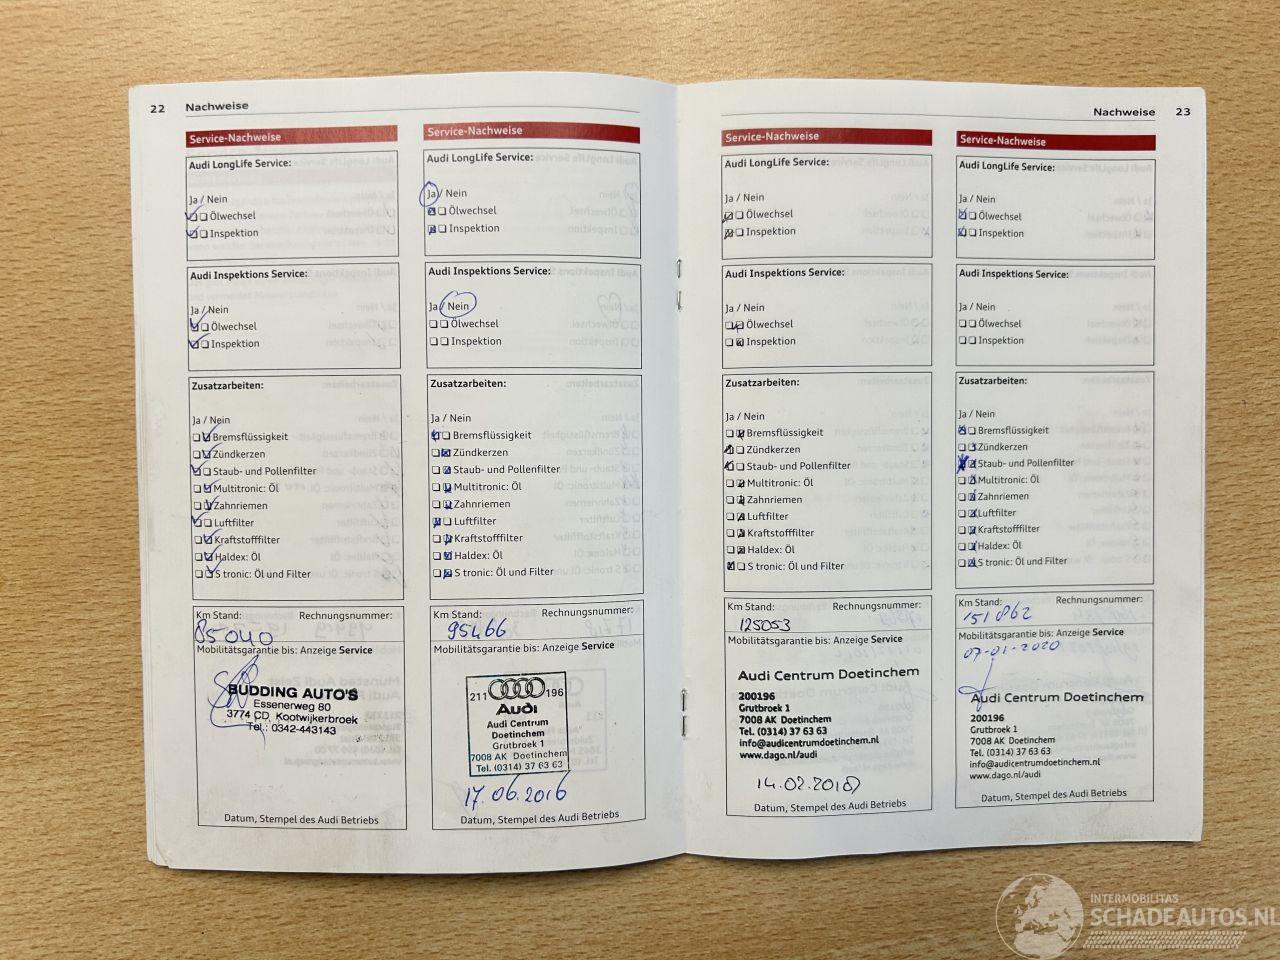 22 Nachweise
Service-Nachweise
Audi LongLife Service:
Ja / Nein
Ölwechsel
Inspektion
Audi Inspektions Service:
Ja / Nein
Ölwechsel
Inspektion
Zusatzarbeiten:
Ja / Nein
Bremsflüssigkeit
Zündkerzen
Staub- und Pollenfilter
Multitronic: Öl
Zahnriemen
Luftfilter
Kraftstofffilter
Haldex: Öl
S tronic: Öl und Filter
Km Stand: Rechnungsnummer:
85040
Mobilitätsgarantie bis: Anzeige Service
BUDDING AUTO'S
Essenerweg 80
3774 CD Kootwijkerbroek
Tel.: 0342-443143
Datum, Stempel des Audi Betriebs
Service-Nachweise
Audi LongLife Service:
Ja / Nein
Ölwechsel
Inspektion
Audi Inspektions Service:
Ja / Nein
Ölwechsel
Inspektion
Zusatzarbeiten:
Ja / Nein
Bremsflüssigkeit
Zündkerzen
Staub- und Pollenfilter
Multitronic: Öl
Zahnriemen
Luftfilter
Kraftstofffilter
Haldex: Öl
S tronic: Öl und Filter
Km Stand: Rechnungsnummer:
95466
Mobilitätsgarantie bis: Anzeige Service
211 196
Audi
Audi Centrum
Doetinchem
Grutbroek 1
7008 AK Doetinchem
Tel. (0314) 37 63 63
17.06.2016
Datum, Stempel des Audi Betriebs
Nachweise 23
Service-Nachweise
Audi LongLife Service:
Ja / Nein
Ölwechsel
Inspektion
Audi Inspektions Service:
Ja / Nein
Ölwechsel
Inspektion
Zusatzarbeiten:
Ja / Nein
Bremsflüssigkeit
Zündkerzen
Staub- und Pollenfilter
Multitronic: Öl
Zahnriemen
Luftfilter
Kraftstofffilter
Haldex: Öl
S tronic: Öl und Filter
Km Stand: Rechnungsnummer:
125053
Mobilitätsgarantie bis: Anzeige Service
Audi Centrum Doetinchem
200196
Grutbroek 1
7008 AK Doetinchem
Tel. (0314) 37 63 63
info@audicentrumdoetinchem.nl
www.dago.nl/audi
14.02.2018
Datum, Stempel des Audi Betriebs
Service-Nachweise
Audi LongLife Service:
Ja / Nein
Ölwechsel
Inspektion
Audi Inspektions Service:
Ja / Nein
Ölwechsel
Inspektion
Zusatzarbeiten:
Ja / Nein
Bremsflüssigkeit
Zündkerzen
Staub- und Pollenfilter
Multitronic: Öl
Zahnriemen
Luftfilter
Kraftstofffilter
Haldex: Öl
S tronic: Öl und Filter
Km Stand: Rechnungsnummer:
151862
Mobilitätsgarantie bis: Anzeige Service
07-01-2020
Audi Centrum Doetinchem
200196
Grutbroek 1
7008 AK Doetinchem
Tel. (0314) 37 63 63
info@audicentrumdoetinchem.nl
www.dago.nl/audi
Datum, Stempel des Audi Betriebs
INTERMOBILITAS
SCHADEAUTOS.NL